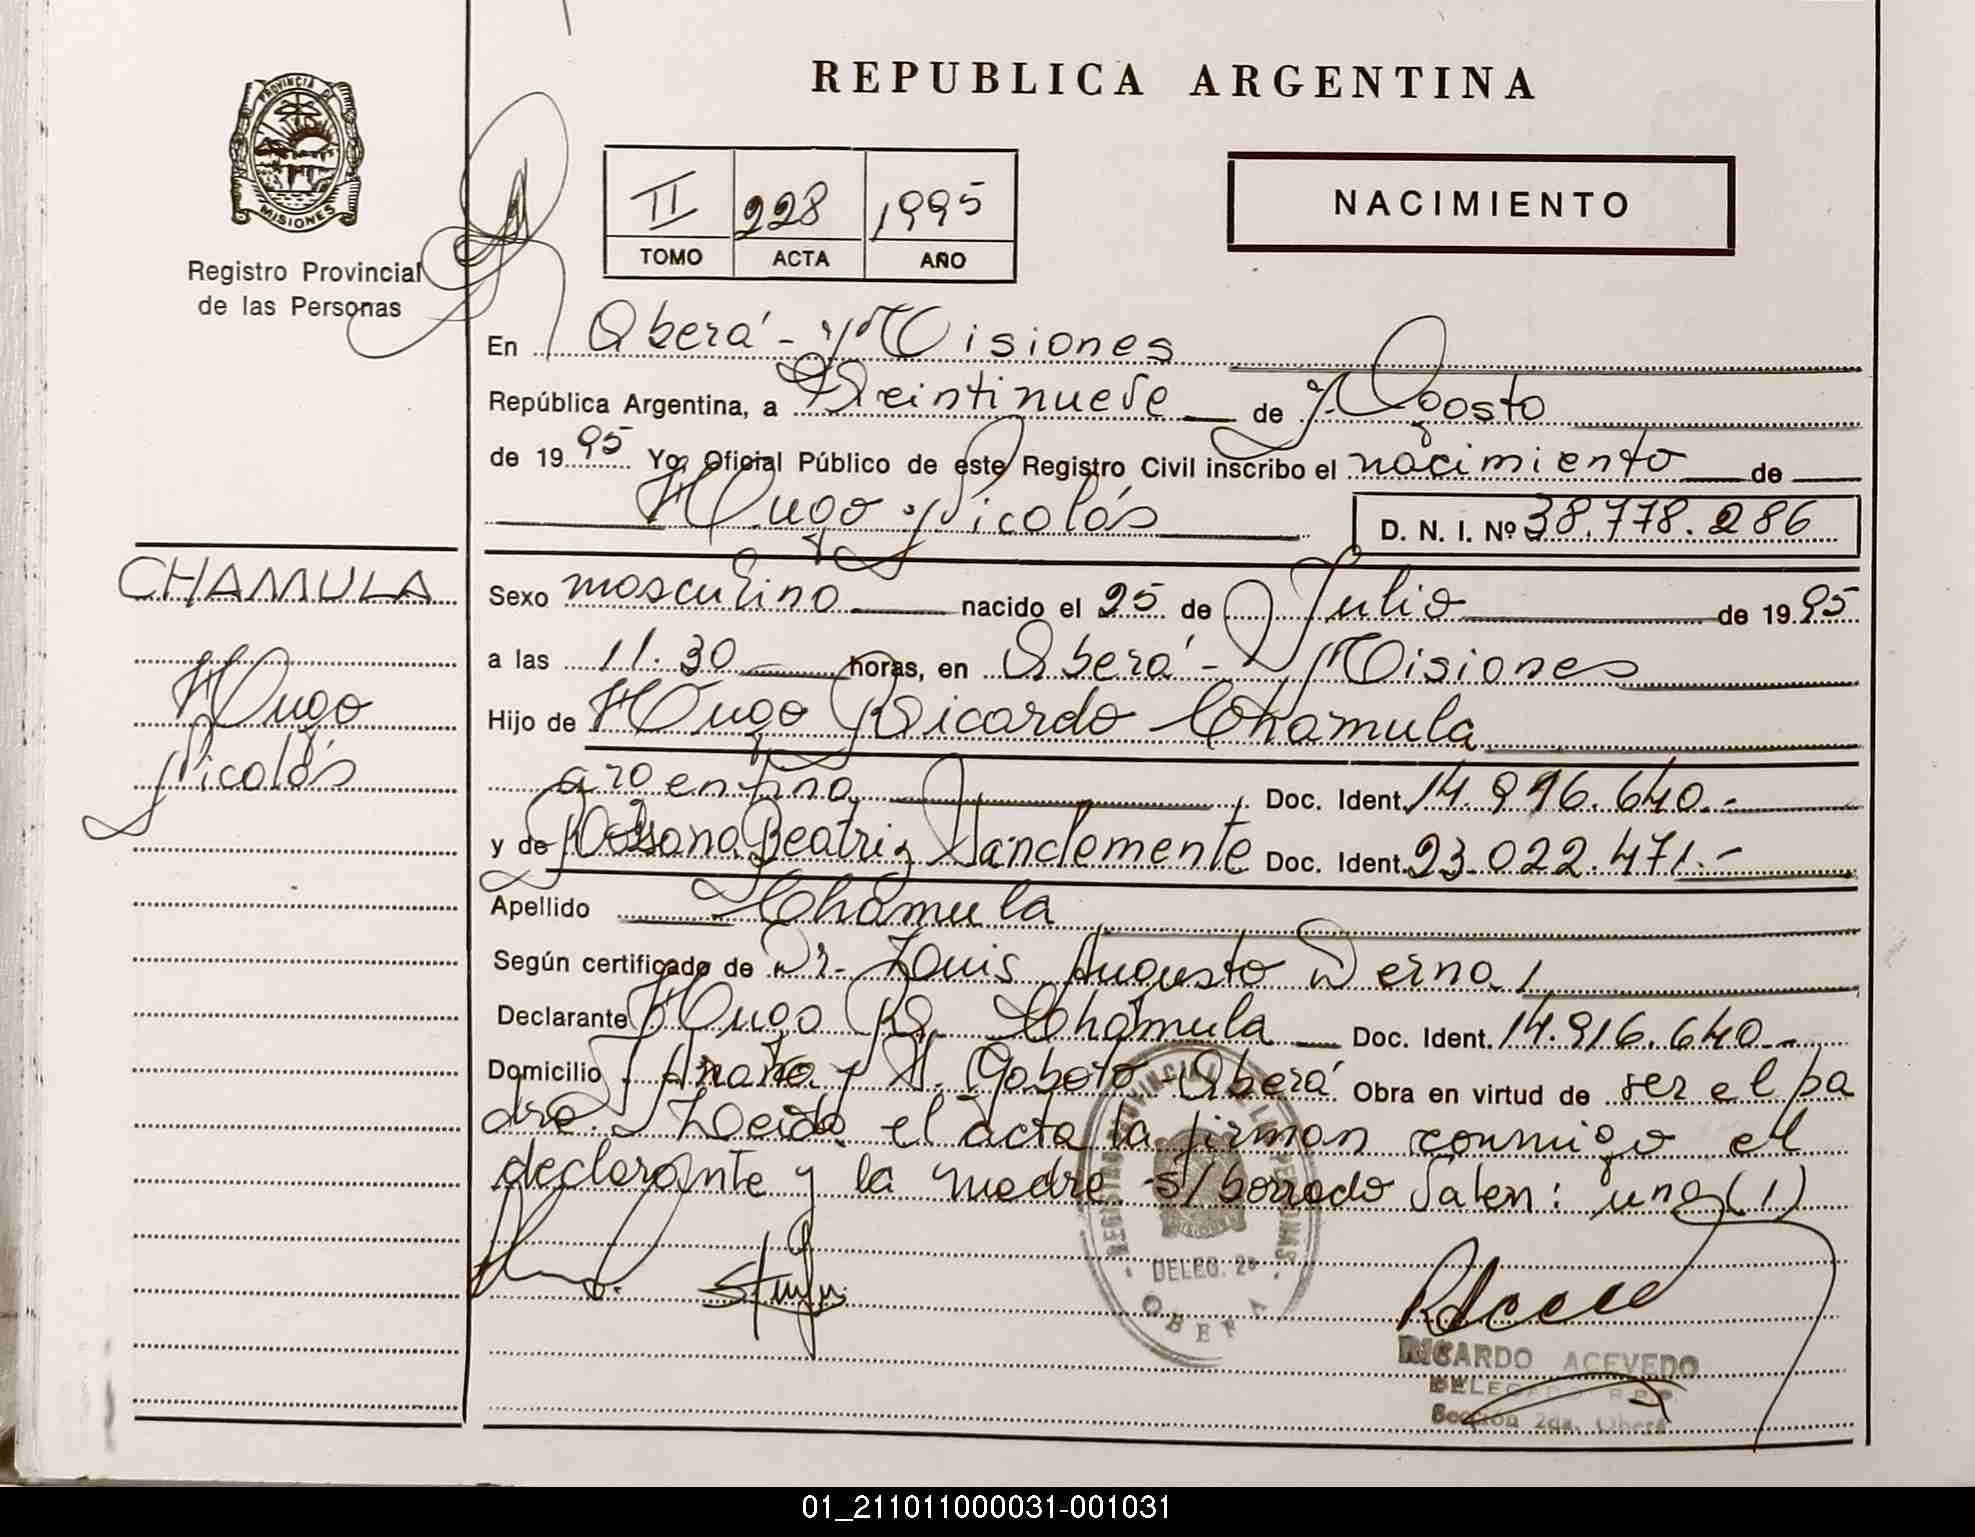 REPUBLICA ARGENTINA
PROVINCIA DE
MISIONES
Registro Provincial
de las Personas
II 228 1995
TOMO ACTA AÑO
NACIMIENTO
En Oberá - Misiones
República Argentina, a Veintinueve de Agosto
de 1995 Yo, Oficial Público de este Registro Civil inscribo el nacimiento de
Hugo Nicolás D. N. I. Nº 38.778.286
CHAMULA
Hugo
Nicolás
Sexo masculino nacido el 25 de Julio de 1995
a las 11.30 horas, en Oberá - Misiones
Hijo de Hugo Ricardo Chamula
argentino Doc. Ident. 14.916.640.-
y de Rossana Beatriz Sanclemente Doc. Ident. 23.022.471.-
Apellido Chamula
Según certificado de Dr. Louis Augusto Derna
Declarante Hugo R. Chamula Doc. Ident. 14.916.640.-
Domicilio y G. Gaboto - Oberá Obra en virtud de ser el pa
dre. Leída el acta la firman conmigo el
declarante y la madre s/borrado Valen: uno (1)
REGISTRO PROVINCIAL DE LAS PERSONAS
DELEG. 2ª
OBERA
RICARDO ACEVEDO
DELEGADO R.P.P.
Sección 2da. Oberá
01_211011000031-001031